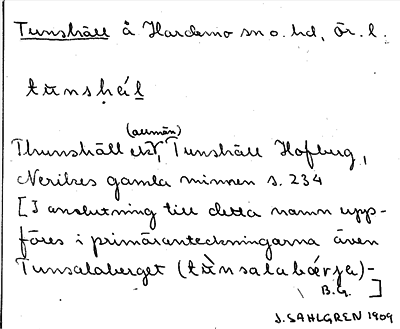 Tunshäll å Hardemo sn o. hd, Ör. l.
tu̅nshä́l
(allmän)
Thunshäll , Tunshäll Hofberg,
Nerikes gamla minnen s. 234
[I anslutning till detta namn upp-
föres i primäranteckningarna även
Tunsalaberget (tùnsalabærja)-
B.G. ]
J. SAHLGREN 1909